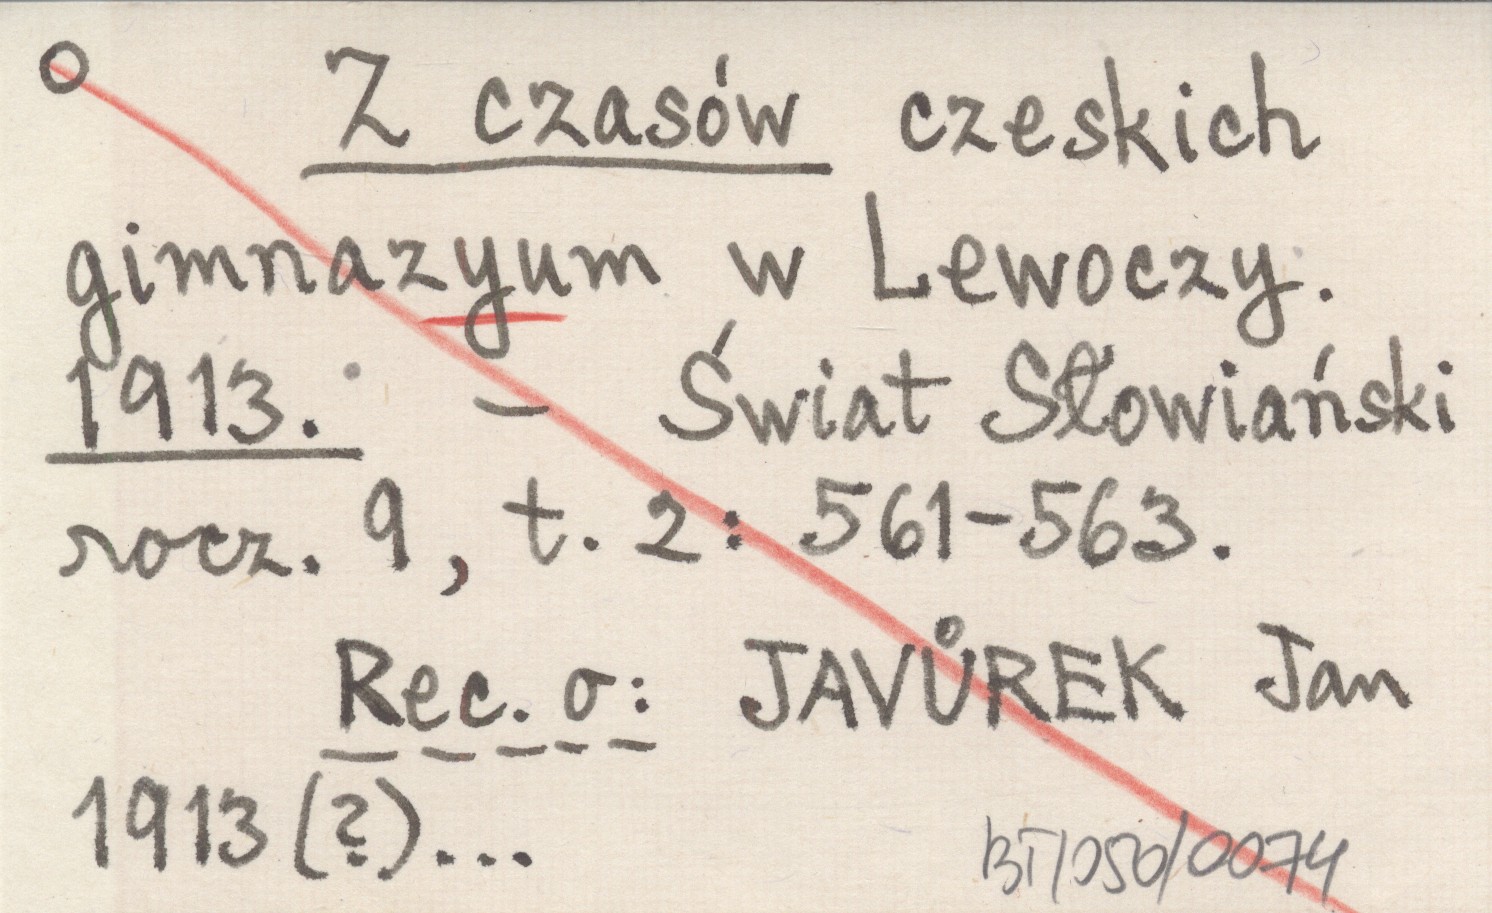 Z czasów czeskich
gimnazyum w Lewoczy.
1913. – Świat Słowiański
rocz. 9, t. 2: 561-563.
Rec. o: JAVŮREK Jan
1913 (?)...
BT/050/0074